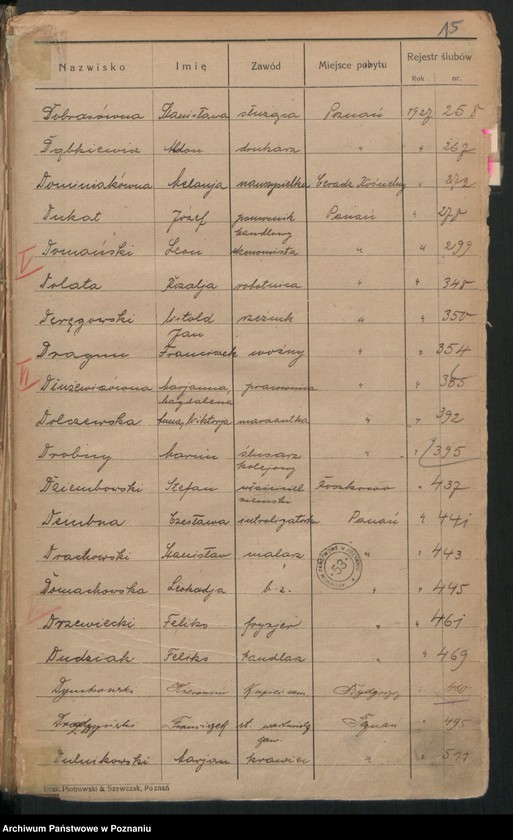 15
Nazwisko Imię Zawód Miejsce pobytu Rejestr ślubów
Rok nr.
Dobrasówna Stanisława służąca Poznań 1927 258
Dąbkiewicz drukarz " " 267
Dominiakówna Melanja nauczycielka Ceradz Kościelny " 272
Dukat Józef pomocnik handlowy Poznań " 278
V Domański Leon ekonomista " " 299
Dolata Rozalja robotnica " " 348
Deręgowski Witold rzeźnik " " 350
Dragun Jan Franciszek woźny " " 354
VI Marjanna, Magdalena pracownica " " 365
Dolczewska Anna, Wiktorja " " 392
Drobiny Marcin ślusarz kolejowy " 395
Dziembowski Stefan właściciel ziemski " 437
Dembna Czesława introligatorka Poznań " 441
Drachowski Stanisław malarz " " 443
Domachowska Leokadja b. z. " " 445
Drzewiecki Feliks fryzjer " " 461
Dudziak Feliks handlarz " " 469
Dymkowski Bydgoszcz " 480
Franciszek Poznań " 495
Dulnikowski Marjan krawiec " " 511
53
Druk. Piotrowski & Szewczak, Poznań
Archiwum Państwowe w Poznaniu